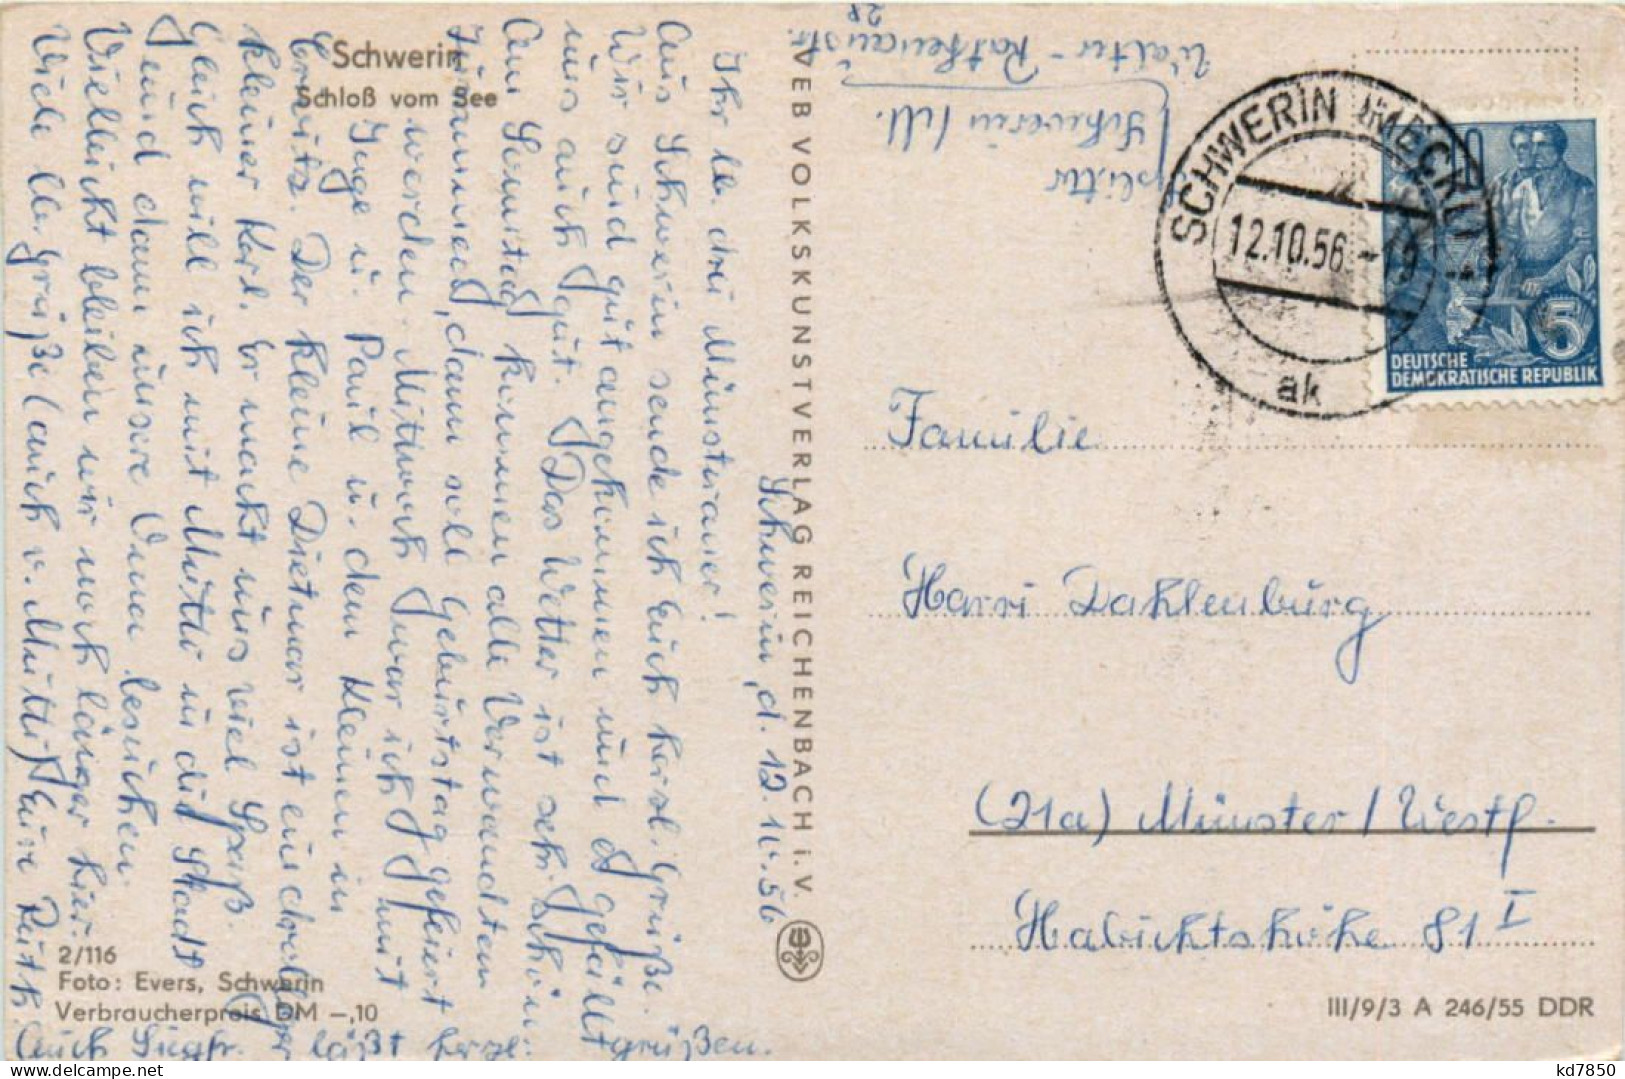 Schwerin
Schloß vom See
Schwerin, d. 12.10.56
Ihr lb. drei Münsteraner!
Aus Schwerin sende ich Euch herzl. Grüße.
Wir sind gut angekommen und es gefällt
uns auch gut. Das Wetter ist sehr schön.
Am Sonntag kommen alle Verwandten
zusammen, dann soll Geburtstag gefeiert
werden. Mittwoch war ich mit
Inge u. Paul u. dem Kleinen in
Crivitz. Der kleine Dietmar ist ein drolliger
kleiner Kerl. Er macht uns viel Spaß.
Gleich will ich mit Mutti in die Stadt
und dann unsere Oma besuchen.
Vielleicht bleiben wir noch länger hier.
Viele lb. Grüße (auch v. Mutti) Eure Ruth.
Auch Siegfr. läßt herzl. grüßen.
2/116
Foto: Evers, Schwerin
Verbraucherpreis DM –,10
VEB VOLKSKUNSTVERLAG REICHENBACH i. V.
Schwerin / M.
Walter-Rathenaustr.
28
SCHWERIN (MECKL)
12.10.56 -19
ak
5
DEUTSCHE
DEMOKRATISCHE REPUBLIK
Familie
Harri Dahlenburg
(21a) Münster / Westf.
Habichtshöhe 81 I
III/9/3 A 246/55 DDR
kd7850